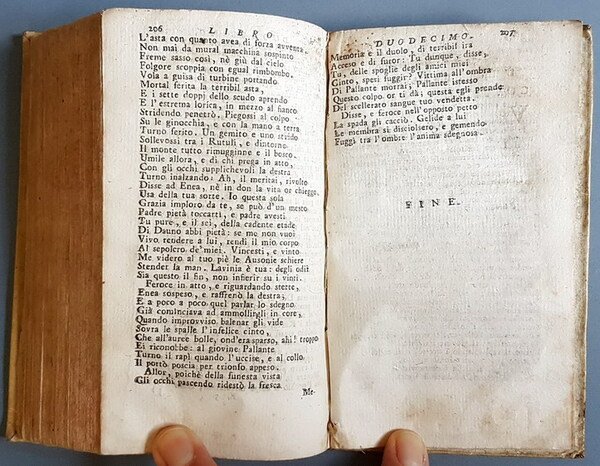 206 LIBRO
L'asta con quanto avea di forza avventa.
Non mai da mural macchina sospinto
Freme sasso così, nè giù dal cielo
Folgore scoppia con egual rimbombo.
Vola a guisa di turbine portando
Mortal ferita la terribil asta,
E i sette doppj dello scudo aprendo
E l'estrema lorica, in mezzo al fianco
Stridendo penetrò. Piegossi al colpo
Su le ginocchia, e con la mano a terra
Turno ferito. Un gemito e uno strido
Sollevossi tra i Rutuli, e dintorno
Il monte tutto rimugginne e il bosco.
Umile allora, e di chi prega in atto,
Con gli occhi supplichevoli la destra
Turno inalzando: Ah, il meritai, rivolto
Disse ad Enea, nè in don la vita or chieggo,
Usa della tua sorte. Io questa sola
Grazia imploro da te, se può d'un mesto
Padre pietà toccarti, e padre avesti
Tu pure, e il sei, della cadente etade
Di Dauno abbi pietà: se me non vuoi
Vivo rendere a lui, rendi il mio corpo
Al sepolcro de'miei. Vincesti, e vinto
Me videro al tuo piè le Ausonie schiere
Stender la man. Lavinia è tua: degli odii
Sia questo il fin, non inferir su i vinti.
Feroce in atto, e riguardando stette,
Enea sospeso, e raffrenò la destra,
E a poco a poco quel parlar lo sdegno
Già cominciava ad ammollingli in core,
Quando improvviso balenar gli vide
Sovra le spalle l'infelice cinto,
Che all'auree bolle, ond'era sparso, ahi! troppo
Ei riconobbe: al giovine Pallante
Turno il rapì quando l'uccise, e al collo
Il portò poscia per trionfo appeso.
Allor, poichè della funesta vista
Gli occhi pascendo ridestò la fresca
Me-
DUODECIMO. 207
Memoria e il duolo, di terribil ira
Acceso e di furor: Tu dunque, disse,
Tu, delle spoglie degli amici miei
Cinto, speri fuggir? Vittima all'ombra
Di Pallante morrai; Pallante istesso
Questo colpo or ti dà; questa egli prende
Del scellerato sangue tuo vendetta.
Disse, e feroce nell'opposto petto
La spada gli cacciò. Gelide a lui
Le membra si disciolsero, e gemendo
Fuggì tra l'ombre l'anima sdegnosa.
FINE.